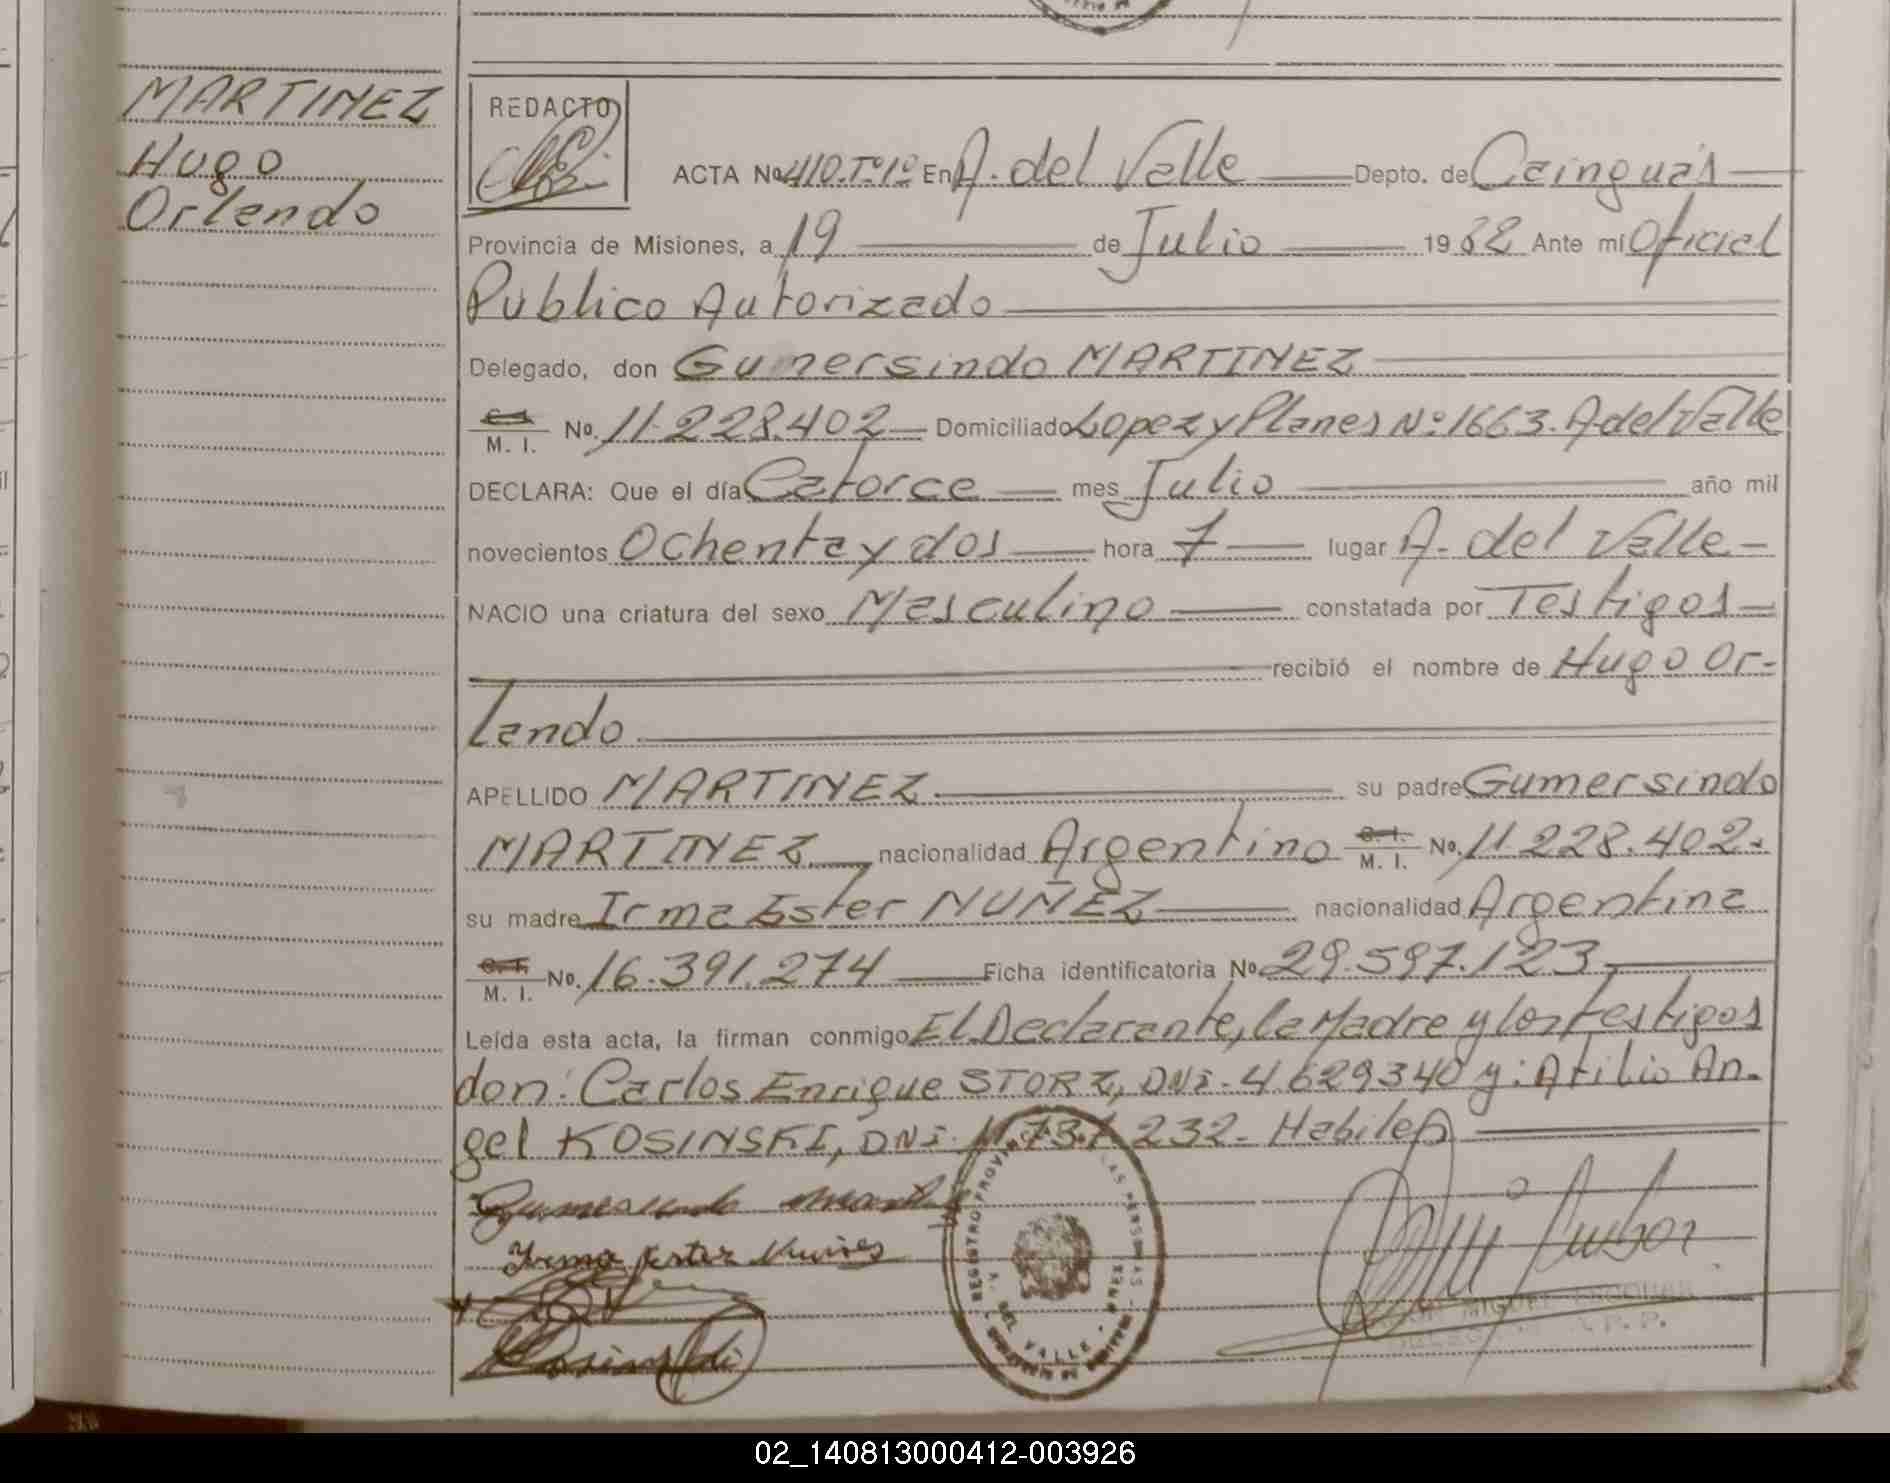 MARTINEZ
Hugo
Orlando
REDACTO
ACTA No 410. Tº 1º En A. del Valle Depto. de Cainguás
Provincia de Misiones, a 19 de Julio 1982 Ante mí Oficial
Publico Autorizado
Delegado, don Gumersindo MARTINEZ
C.I. M. I. No. 11.228.402 Domiciliado Lopez y Planes Nº 1663. A del Valle
DECLARA: Que el día Catorce mes Julio año mil
novecientos Ochenta y dos hora 7 lugar A. del Valle
NACIO una criatura del sexo Masculino constatada por Testigos
recibió el nombre de Hugo Or-
lando
APELLIDO MARTINEZ su padre Gumersindo
MARTINEZ nacionalidad Argentino C.I. M. I. No. 11.228.402.
su madre Irma Ester NUÑEZ nacionalidad Argentina
C.I. M. I. No. 16.391.274 Ficha identificatoria No. 29.597.123
Leída esta acta, la firman conmigo El Declarante, la Madre y los testigos
don: Carlos Enrique STORZ, DNI. 4.629340 y: Atilio An-
gel KOSINSKI, DNI. 11.737.232. Habiles
Irma Ester Nuñes
REGISTRO PROVINCIAL DE LAS PERSONAS
A. DEL VALLE
02_140813000412-003926